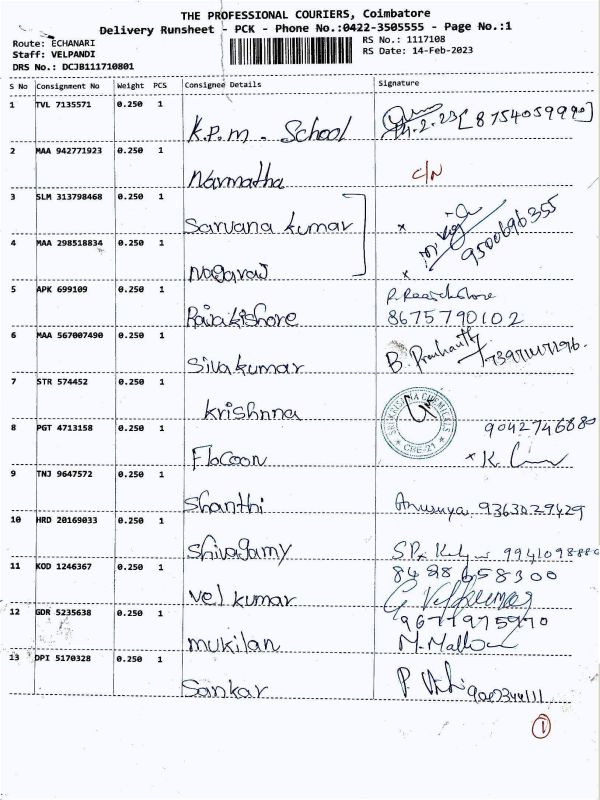 THE PROFESSIONAL COURIERS, Coimbatore
Delivery Runsheet - PCK - Phone No.:0422-3505555 - Page No.:1
Route: ECHANARI
Staff: VELPANDI
DRS No.: DCJB111710801
RS No.: 1117108
RS Date: 14-Feb-2023
S No Consignment No Weight PCS Consignee Details Signature
1 TVL 7135571 0.250 1 K.P.M. School [8754059990]
2 MAA 942771923 0.250 1 Narmatha C/N
3 SLM 313798468 0.250 1 Sarvana kumar x 9500696355
4 MAA 298518834 0.250 1 Nagaraj x
5 APK 699109 0.250 1 Rajakishore 8675790102
6 MAA 567007490 0.250 1 Sivakumar B. Prashanth
7 STR 574452 0.250 1 krishnna
SRI KRISHNA CHEMICALS
CBE-21
8 PGT 4713158 0.250 1 Flocoon 9042746880
x K.
9 TNJ 9647572 0.250 1 Shanthi Anusuya 9363029429
10 HRD 20169033 0.250 1 Shivagamy
11 KOD 1246367 0.250 1 Vel kumar 8428658300
12 GDR 5235638 0.250 1 Mukilan 9677975970
13 DPI 5170328 0.250 1 Sankar
1